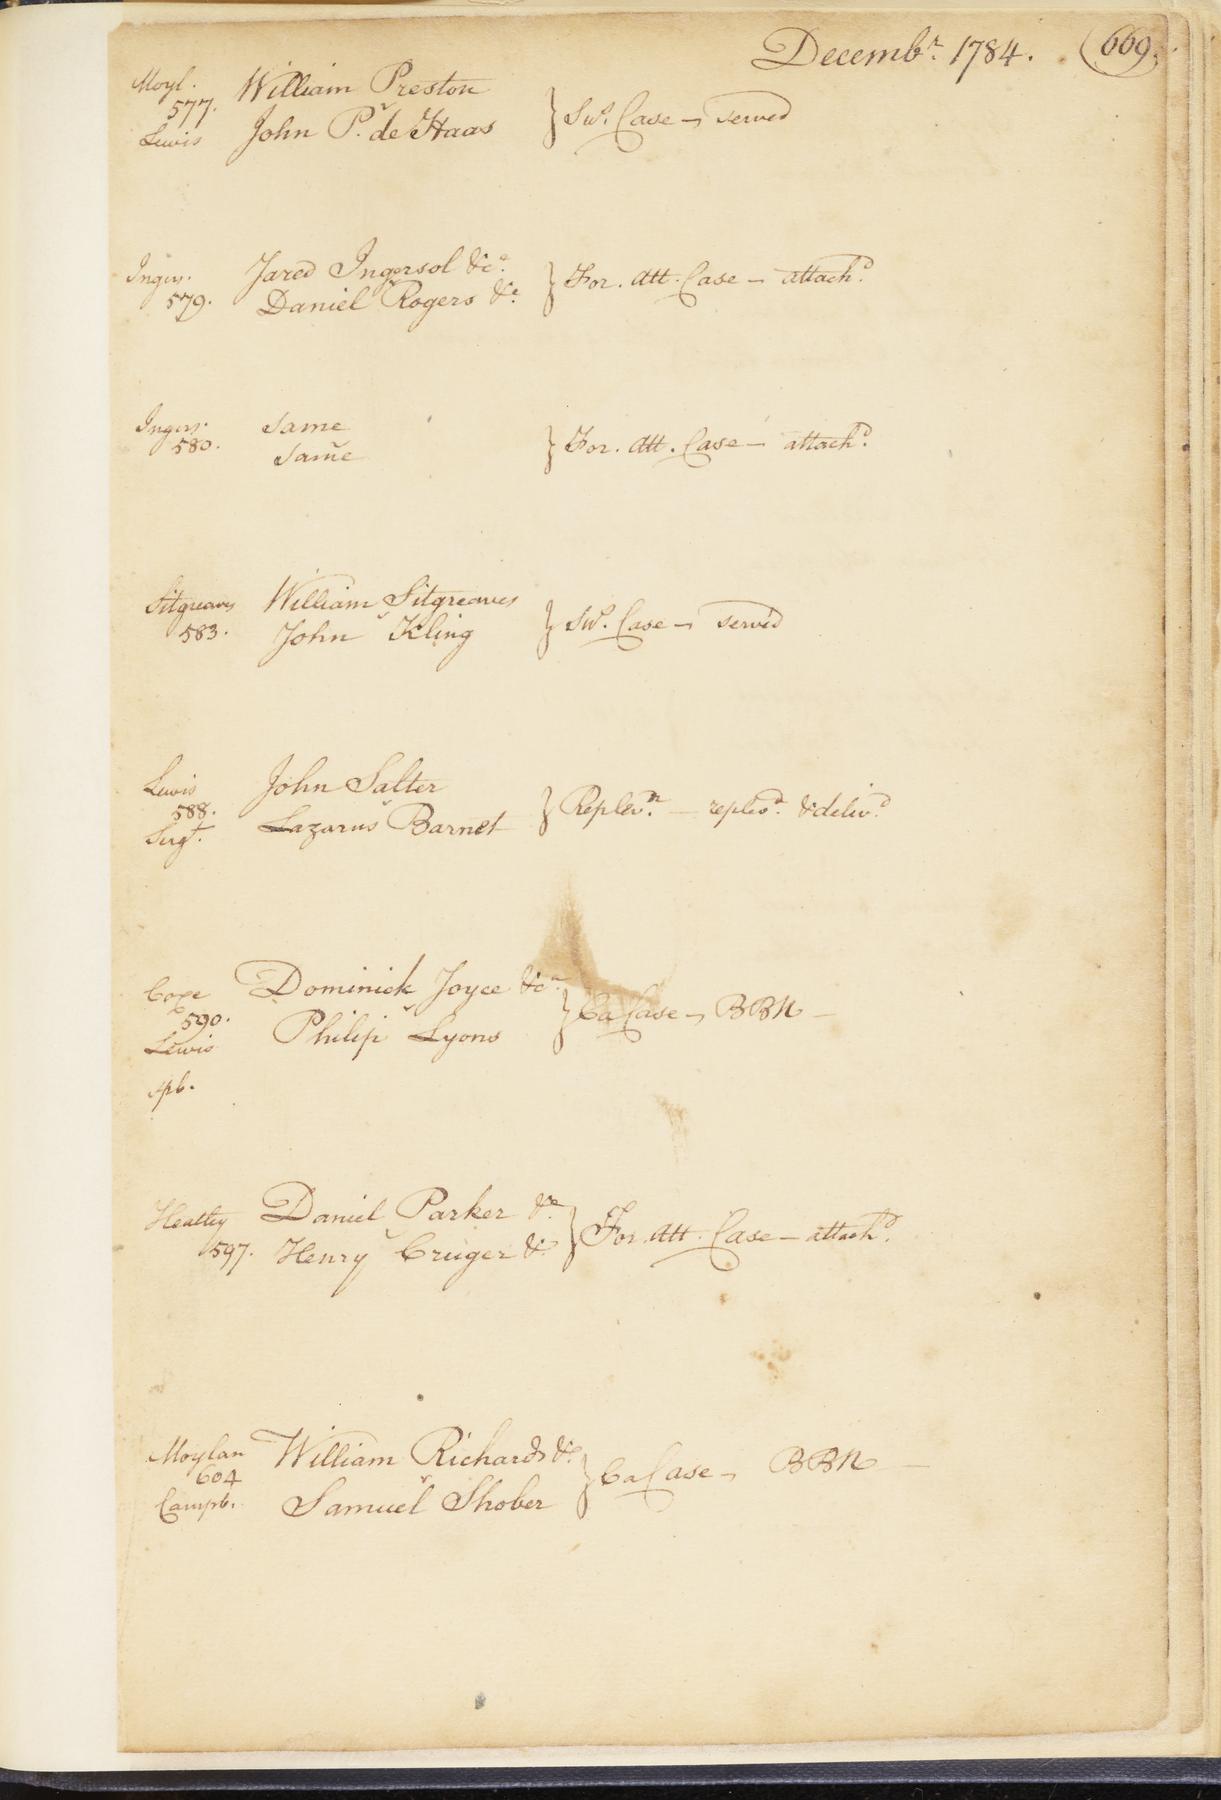 Decembr. 1784. (669.
Moyl. William Preston
577. v } Sus. Case – served
Lewis John P. de Haas
Ingers. Jared Ingersol &ca.
579. v } For. Att. Case – attachd.
Daniel Rogers &c.
Ingers. Same
580. v } For. Att. Case – attachd.
Same
Sitgreaves William Sitgreaves
583. v } Sus. Case – served
John Kling
Lewis John Salter
588. v } Replevn. – replevd. & delivd.
Sergt. Lazarus Barnet
Coxe Dominick Joyce &ca.
590. v } Ca Case – BBN –
Lewis Philip Lyons
spb.
Heatley Daniel Parker &c.
597. v } For. Att. Case – attachd.
Henry Cruger &c.
Moylan William Richards &c.
604 v } Ca Case – BBN –
Campb. Samuel Shober